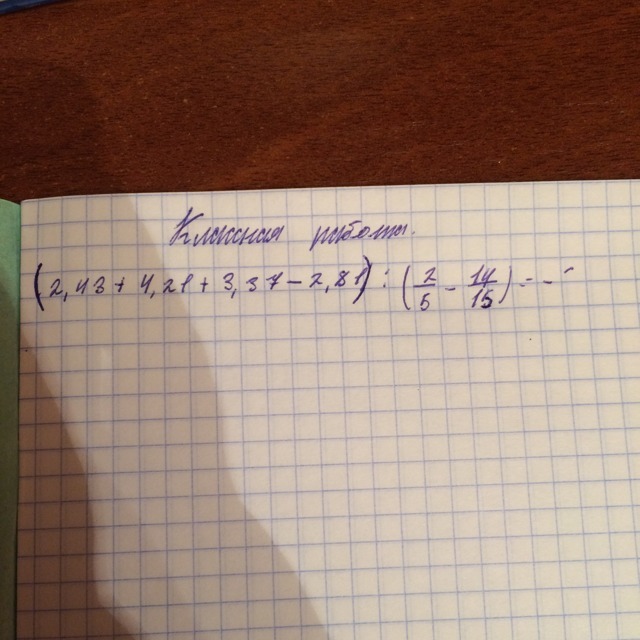 Классная работа.
(2,43 + 4,21 + 3,37 - 2,81) : (2/5 - 14/15) = - -